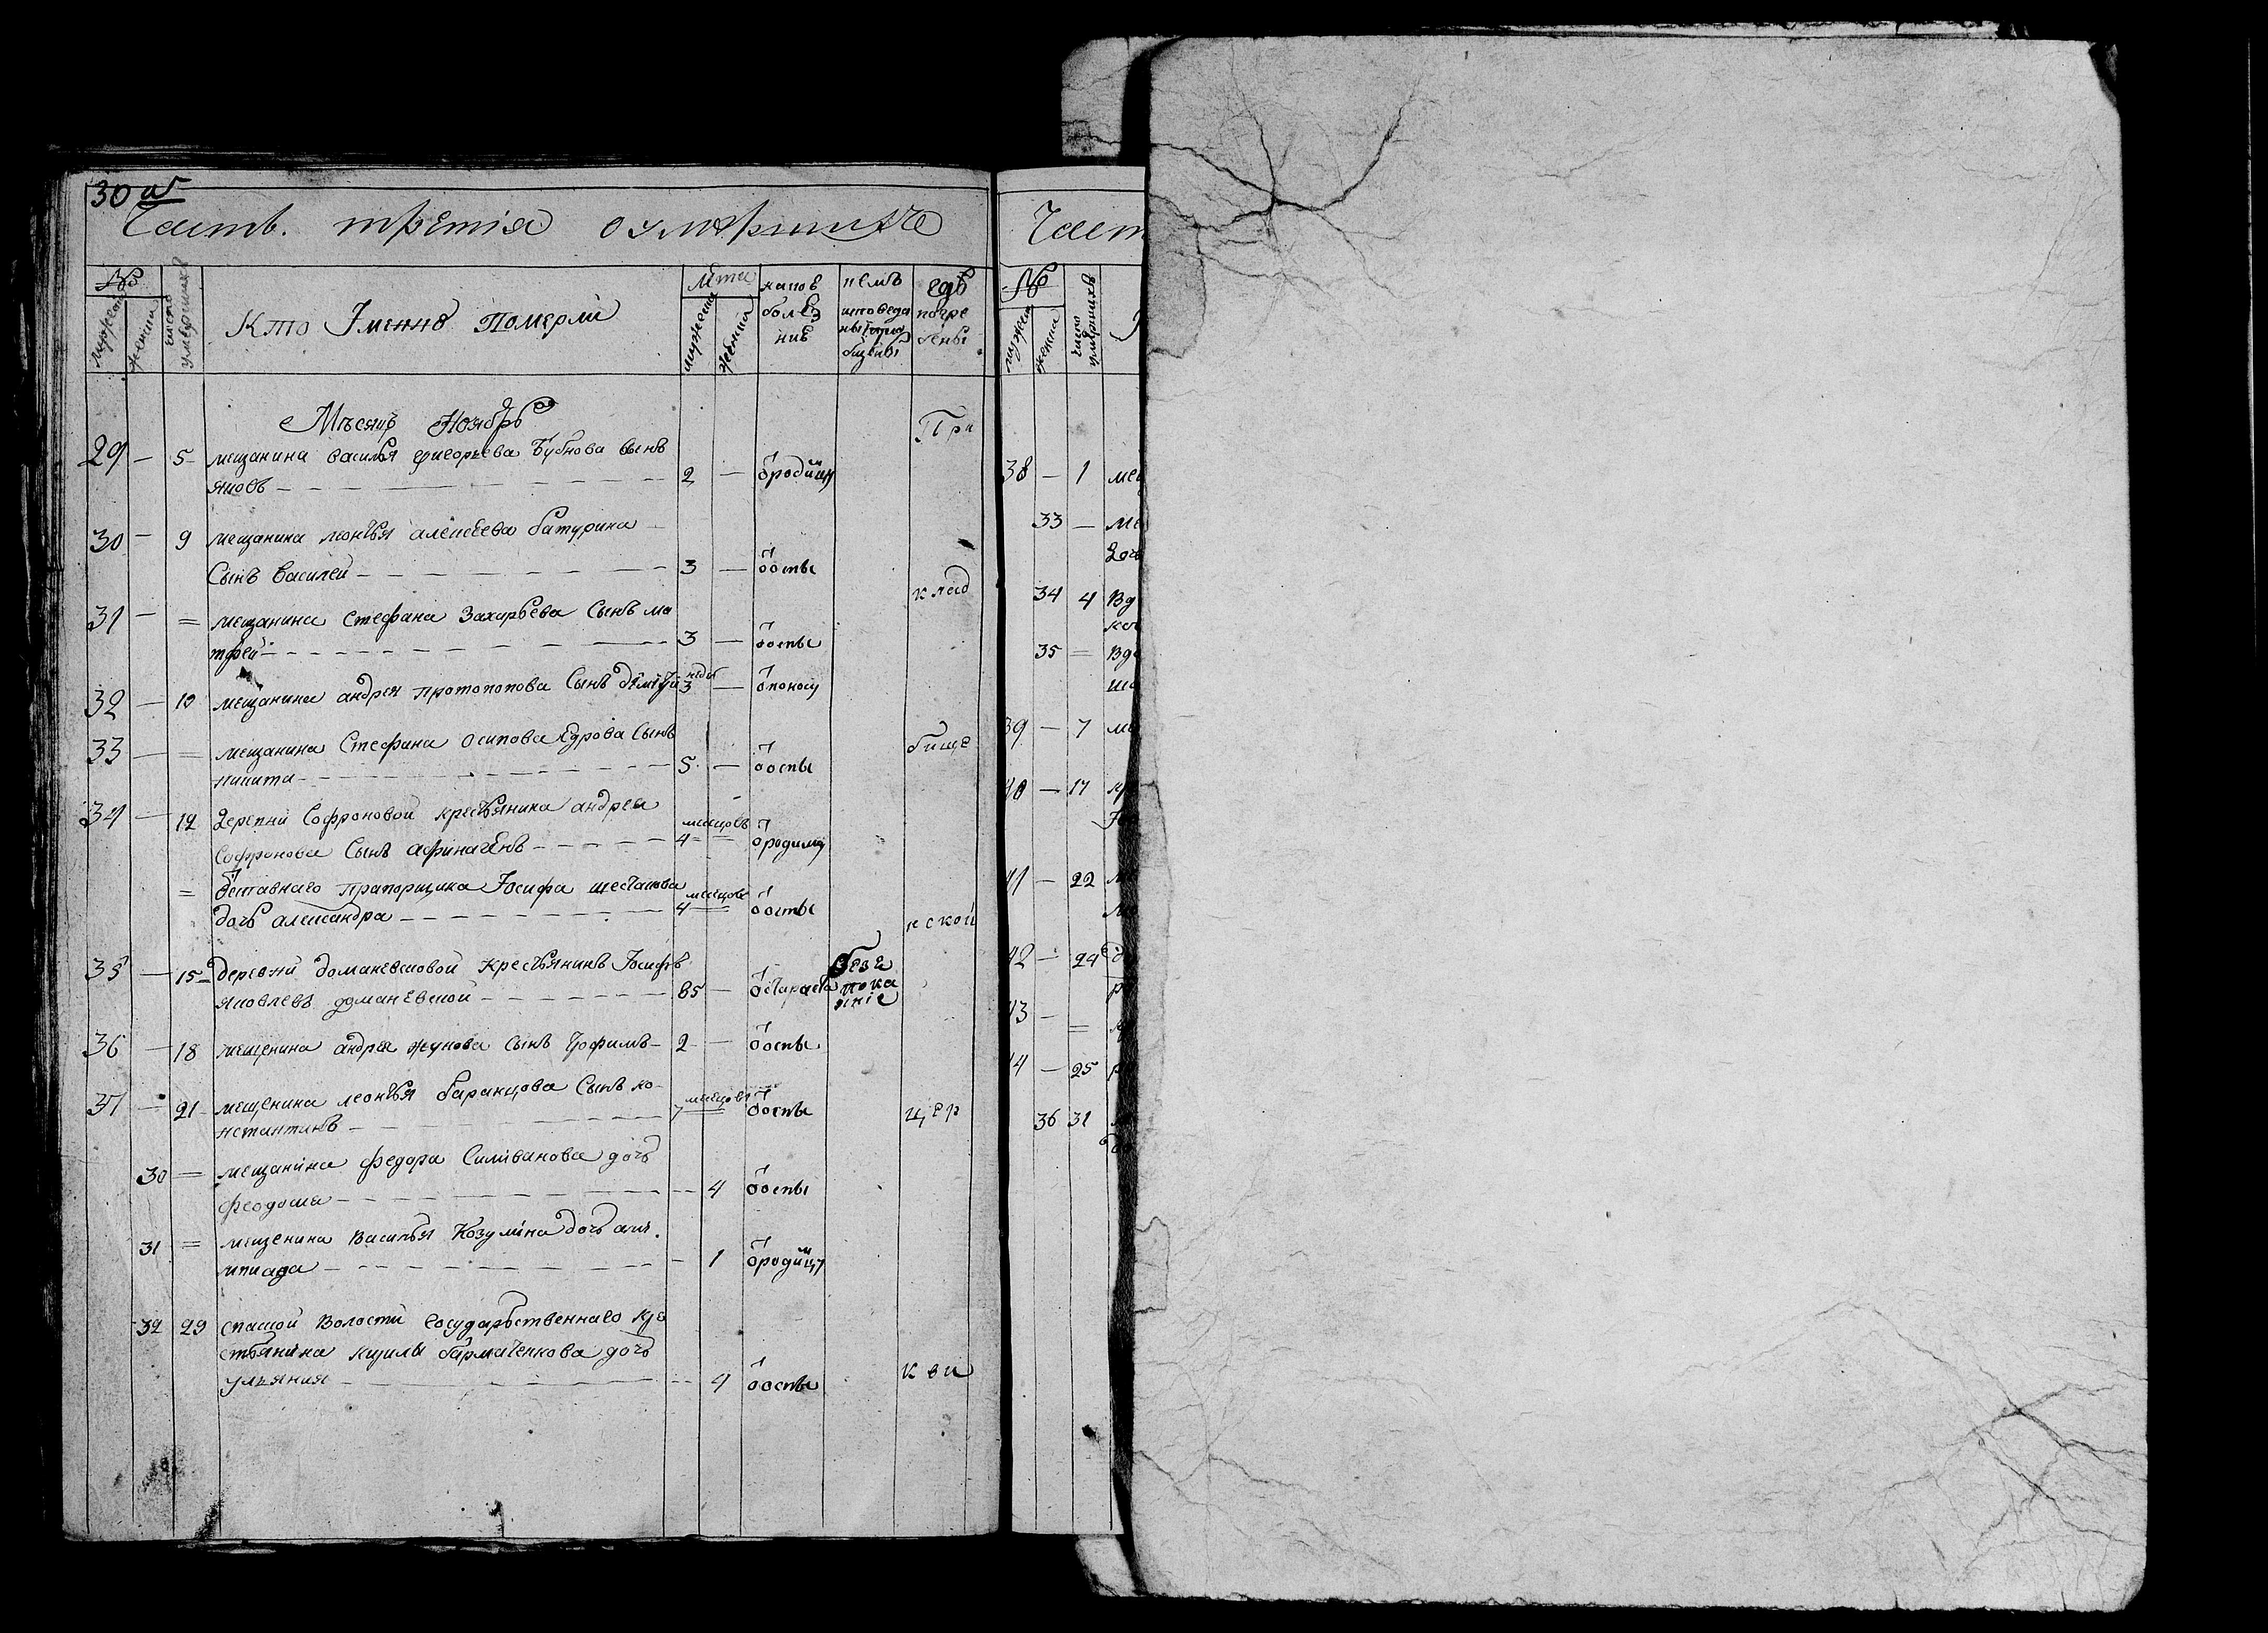 30 об
Часть третія о умершихъ
№ мужеска женска
число умершихъ
Кто Іменно Померли
Лѣта мужеска женска
какою болѣзнію
кемъ исповеданы и приобщены
гдѣ погребены
Мѣсяцъ Ноябрь
При
29 — 5 мещанина василья григорьева Бубнова сынъ
яковъ — 2 — ѿ родимцу
30 — 9 мещанина леонтья алексѣева батурина —
Сынъ василей — 3 — ѿ оспы
клад
31 — = мещанина стефана Захарьева Сынъ ма
тфей — 3 — ѿ оспы
32 — 10 мещанина андрея протопопова Сынъ димитрий недѣ 3 — ѿ поносу
33 — = мещанина Стефана осипова Едрова Сынъ
никита — 5 — ѿ оспы
бище
34 — 12 Деревни Софроновой крестьянина андрея
Софронова Сынъ афиногѣнъ — месяцовъ 4 = ѿ родимцу
= ѿставнаго прапорщика Іосифа шестакова
дочь александра — месяцовъ 4 = ѿ оспы
нской
35 — 15 — деревни доманевской Крестьянинъ Іосифъ
яковлевъ доманевской — 85 — ѿ старости безъ покаяніе
36 — 18 мещенина андрея жукова сынъ трофимъ — 2 — ѿ оспы
37 — 21 — мещенина леонтья баранцова Сынъ ко-
нстантинъ — месяцовъ 7 = ѿ оспы
цер
30 = мещанина федора Силиванова дочь
феодосья — 4 ѿ оспы
31 = мещенина Василья Козулина дочь оли
мпиада — 1 ѿ родимцу
32 29 спаской Волости государственнаго кре
стьянина кирилы бармаченкова дочь
ульяния — 4 ѿ оспы
кви
Част
№ мужеска женска
число умершихъ
38 — 1 ме
33 — ме
доч
34 4 Вд
35 = Вд
39 — 7 ме
40 — 17 кр
41 — 22
42 — 24
43 — =
44 — 25
36 31